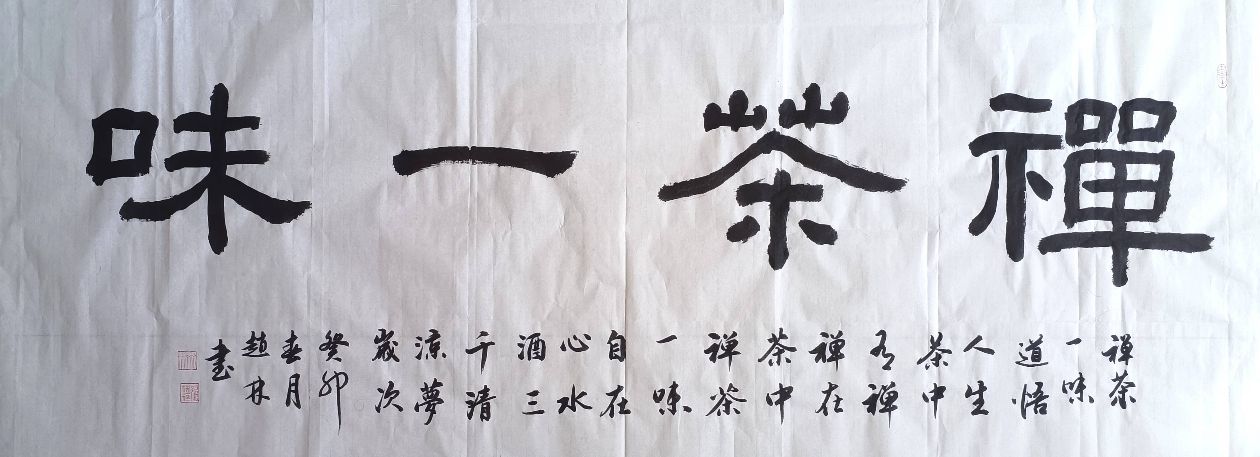 禪茶一味
禅茶
一味
道悟
人生
茶中
有禅
禅在
茶中
禅茶
一味
自在
心水
酒三
千清
涼夢
歲次
癸卯
春月
趙林
書